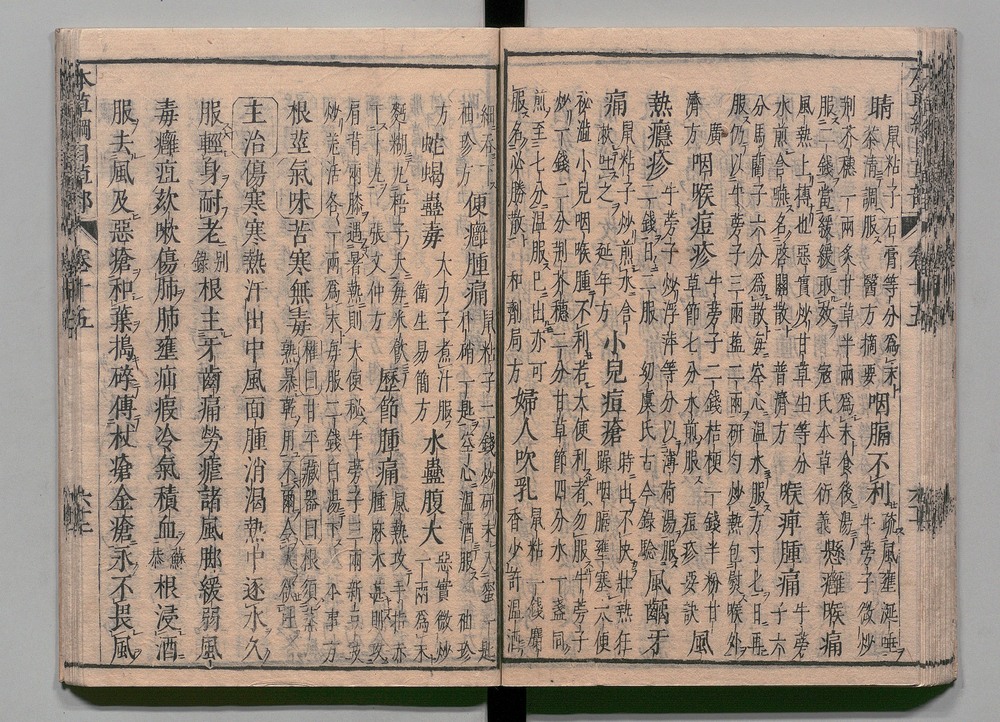 睛 鼠粘子石膏等分為末茶清調服 醫方摘要 咽膈不利 疏風壅涎唾牛蒡子微炒
荊芥穗一兩炙甘草半兩為末食後湯服二錢當緩緩取效 寇氏本草衍義 懸癰喉痛
風熱上搏也惡實炒甘草生等分水煎含嚥名啓關散 普濟方 喉痺腫痛 牛蒡子六
分馬藺子六分為散每空心溫水服方寸匕日再服仍以牛蒡子三兩鹽二兩研勻炒熱包熨喉外
廣濟方 咽喉痘疹 牛蒡子二錢桔梗一錢半粉甘草節七分水煎服 痘疹要訣 風
熱癮疹 牛蒡子炒浮萍等分以薄荷湯服二錢日二服 初虞氏古今錄驗 風齲牙
痛 鼠粘子炒煎水含漱吐之 延年方 小兒痘瘡 時出不快壯熱狂躁咽膈壅塞大便
祕澁小兒咽喉腫不利若大便利者勿服牛蒡子炒一錢二分荊芥穗二分甘草節四分水一盞同
煎至七分溫服已出亦可服名必勝散 和劑局方 婦人吹乳 鼠粘二錢麝香少許溫酒
細吞下 袖珍方 便癰腫痛 鼠粘子二錢炒研末入蜜一匙朴硝一匙空心溫酒服 袖珍
方 蛇蝎蠱毒 大力子煮汁服 衛生易簡方 水蠱腹大 惡實微炒一兩為末
麪糊丸梧子大每米飲下十丸 張文仲方 歷節腫痛 風熱攻手指赤腫麻木甚則攻
肩背兩膝遇暑熱則大便秘牛蒡子三兩新豆豉炒羌活各一兩為末每服二錢白湯下 本事方
根莖氣味苦寒無毒 權曰甘平藏器曰根須蒸熟暴乾用不爾令人欲吐
主治傷寒寒熱汗出中風面腫消渴熱中逐水久
服輕身耐老 別錄 根主牙齒痛勞瘧諸風脚緩弱風
毒癰疽欬嗽傷肺肺壅疝瘕冷氣積血 蘇恭 根浸酒
服去風及惡瘡和葉搗碎傅杖瘡金瘡永不畏風